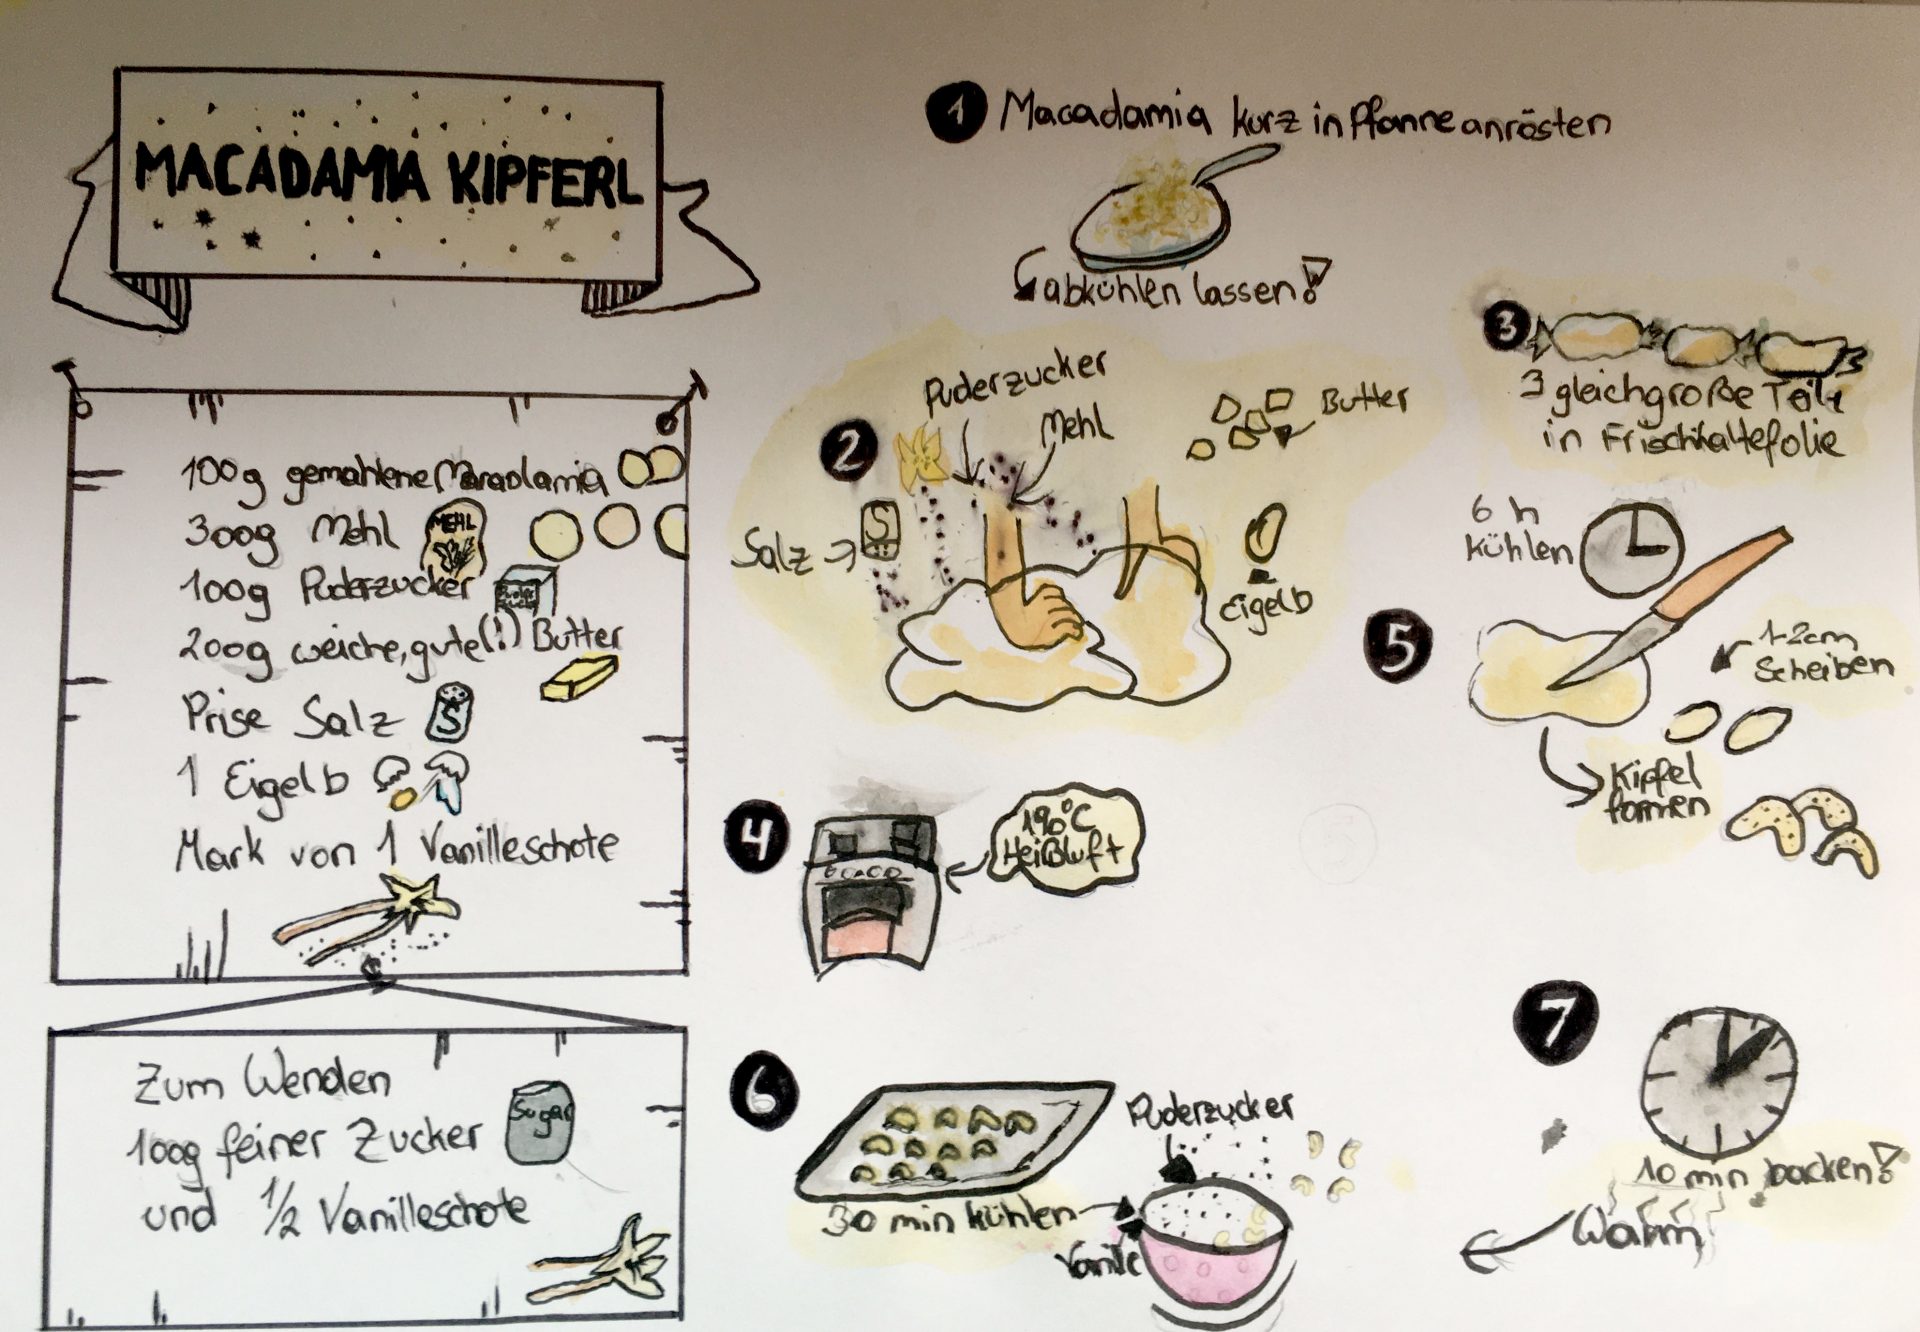 MACADAMIA KIPFERL
100g gemahlene Macadamia
300g Mehl
MEHL
100g Puderzucker
Puder
Zucker
200g weiche, gute(!) Butter
Prise Salz
S
1 Eigelb
Mark von 1 Vanilleschote
Zum Wenden
100g feiner Zucker
Sugar
und 1/2 Vanilleschote
1 Macadamia kurz in Pfanne anrösten
abkühlen lassen!
2
Puderzucker
Mehl
Butter
Salz
S
Eigelb
3
3 gleichgroße Teile
in Frischhaltefolie
6 h
kühlen
4
190°C
Heißluft
5
1-2cm
Scheiben
Kipfel
formen
6
30 min kühlen
Puderzucker
Vanille
7
10 min backen!
Warm